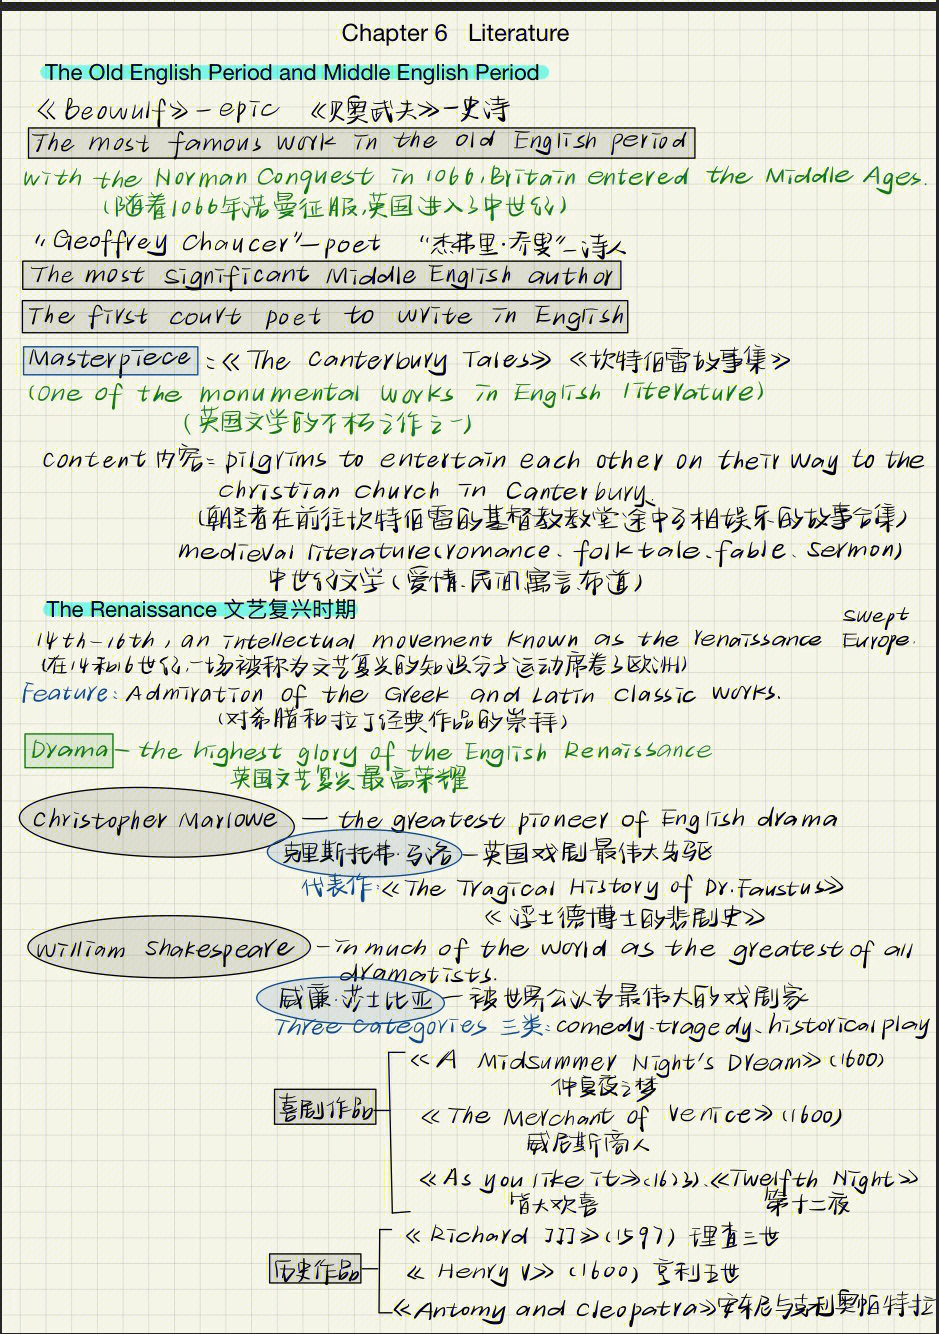 Chapter 6 Literature
The Old English Period and Middle English Period
《Beowulf》—epic 《贝奥武夫》—史诗
The most famous work in the old English period
with the Norman Conquest in 1066, Britain entered the Middle Ages.
(随着1066年诺曼征服,英国进入了中世纪)
"Geoffrey Chaucer"—poet "杰弗里·乔叟"—诗人
The most significant Middle English author
The first court poet to write in English
Masterpiece:《The Canterbury Tales》《坎特伯雷故事集》
(One of the monumental works in English literature)
(英国文学的不朽之作之一)
content内容: pilgrims to entertain each other on their way to the
christian church in Canterbury、
(朝圣者在前往坎特伯雷的基督教教堂途中互相娱乐的故事合集)
medieval literature(romance、folk tale、fable、sermon)
中世纪文学(爱情、民间、寓言、布道)
The Renaissance 文艺复兴时期
14th-16th, an intellectual movement known as the renaissance swept Europe.
(在14和16世纪,一场被称为文艺复兴的知识分子运动席卷了欧洲)
Feature: Admiration of the Greek and Latin classic works.
(对希腊和拉丁经典作品的崇拜)
Drama— the highest glory of the English Renaissance
英国文艺复兴最高荣耀
Christopher Marlowe — the greatest pioneer of English drama
克里斯托弗·马洛—英国戏剧最伟大先驱
代表作:《The Tragical History of Dr.Faustus》
《浮士德博士的悲剧史》
William Shakespeare —in much of the world as the greatest of all
dramatists.
威廉·莎士比亚—被世界公认为最伟大的戏剧家
Three categories 三类:comedy、tragedy、historical play
《A Midsummer Night's Dream》(1600)
仲夏夜之梦
喜剧作品
《The Merchant of Venice》(1600)
威尼斯商人
《As you like it》(1623)、《Twelfth Night》
皆大欢喜 第十二夜
《Richard III》(1597) 理查三世
历史作品
《Henry V》(1600) 亨利五世
《Antomy and Cleopatra》安东尼与克利奥帕特拉